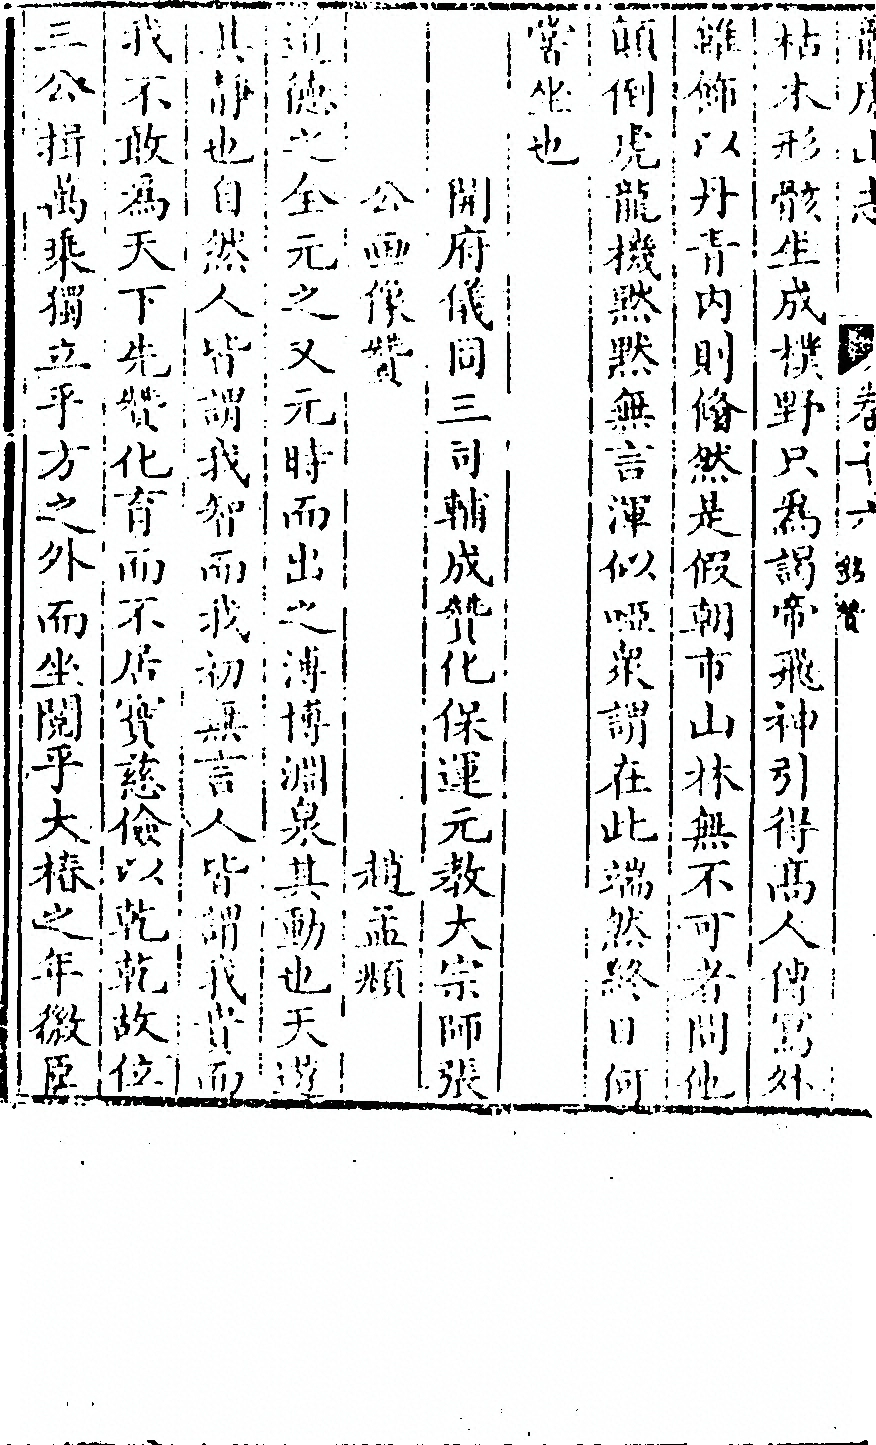 龍虎山志 卷十六 銘贊
枯木形骸生成樸野只爲謁帝飛神引得高人傳寫外
雖飾以丹青内則翛然是假朝市山林無不可者問他
顛倒虎龍機黙黙無言渾似啞衆謂在此端然終日何
嘗坐也
開府儀同三司輔成贊化保運元教大宗師張
公画像贊 趙孟頫
道德之全元之又元時而出之溥博淵泉其動也天遊
其静也自然人皆謂我智而我初無言人皆謂我貴而
我不敢爲天下先贊化育而不居寳慈儉以乾乾故位
三公揖萬乘獨立乎方之外而坐閲乎大椿之年微臣